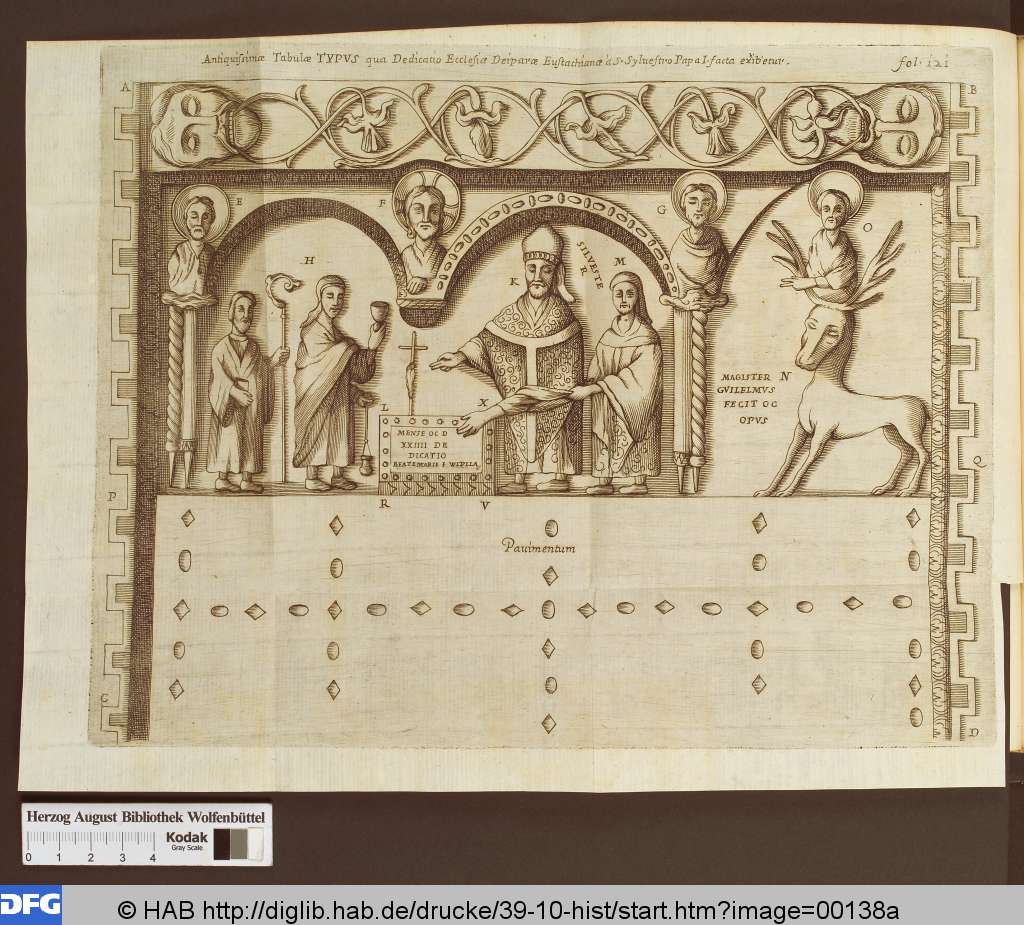 Antiquissimæ Tabulæ TYPVS qua Dedicatio Ecclesiæ Deiparæ Eustachianæ à S. Sylvestro Papa I. facta exibetur.
fol. 121
A
B
E
F
G
O
H
K
SILVESTE
R
M
MAGISTER N
GVILELMVS
FECIT OC
OPVS
L
X
MENSE OC D
XXIIII DE
DICATIO
BEATE MARIE I. WLPILLA
P
Q
R
V
Pavimentum
C
D
Herzog August Bibliothek Wolfenbüttel
Kodak
Gray Scale
0 1 2 3 4
DFG
© HAB http://diglib.hab.de/drucke/39-10-hist/start.htm?image=00138a